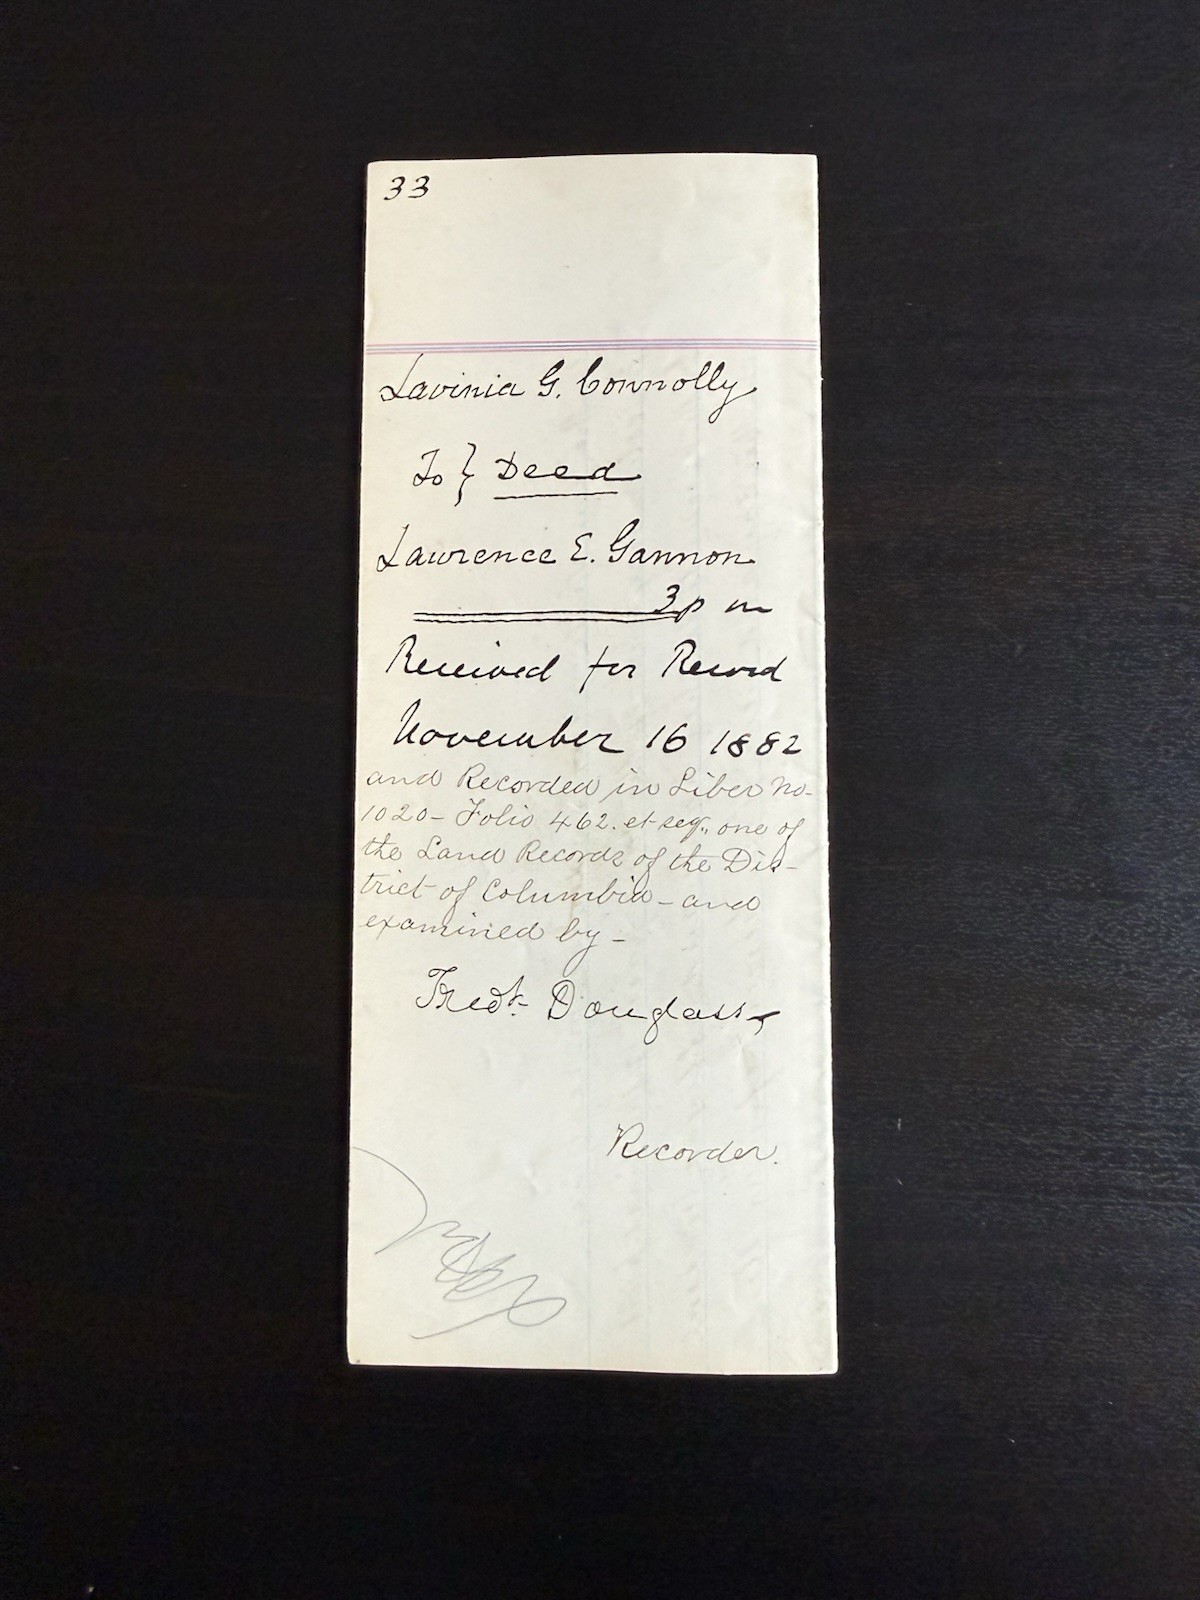 33
Lavinia G. Connolly
To } Deed
Lawrence E. Gannon
3 p m
Received for Record
November 16 1882
and Recorded in Liber No-
1020- Folio 462. et seq., one of
the Land Records of the Dis-
trict of Columbia - and
examined by -
Fredk. Douglass
Recorder.